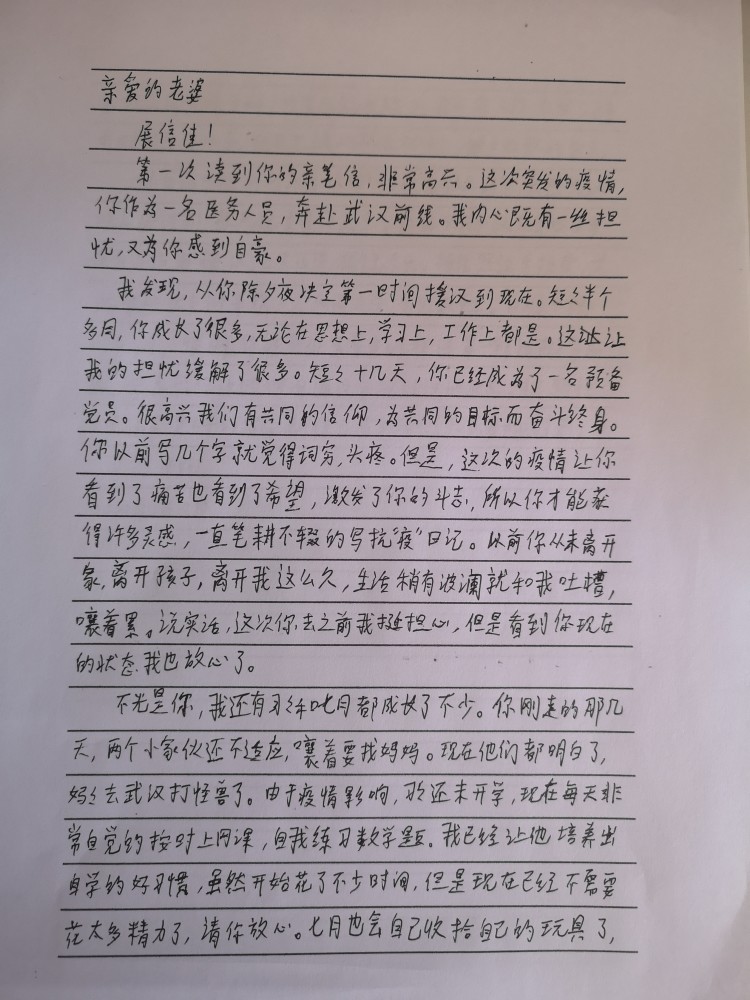 亲爱的老婆
展信佳！
第一次读到你的亲笔信，非常高兴。这次突发的疫情，
你作为一名医务人员，奔赴武汉前线。我内心既有一丝担
忧，又为你感到自豪。
我发现，从你除夕夜决定第一时间援汉到现在。短々半个
多月，你成长了很多，无论在思想上，学习上，工作上都是。这让
我的担忧缓解了很多。短々十几天，你已经成为了一名预备
党员。很高兴我们有共同的信仰，为共同的目标而奋斗终身。
你以前写几个字就觉得词穷，头疼。但是，这次的疫情让你
看到了痛苦也看到了希望，激发了你的斗志，所以你才能获
得许多灵感，一直笔耕不辍的写抗“疫”日记。以前你从未离开
家，离开孩子，离开我这么久，生活稍有波澜就和我吐槽，
嚷着累。说实话，这次你去之前我挺担心，但是看到你现在
的状态我也放心了。
不光是你，我还有和七月都成长了不少。你刚走的那几
天，两个小家伙还不适应，嚷着要找妈妈。现在他们都明白了，
妈々去武汉打怪兽了。由于疫情影响，还未开学，现在每天非
常自觉的按时上网课，自我练习数学题。我已经让他培养出
自学的好习惯，虽然开始花了不少时间，但是现在已经不需要
花太多精力了，请你放心。七月也会自己收拾自己的玩具了，